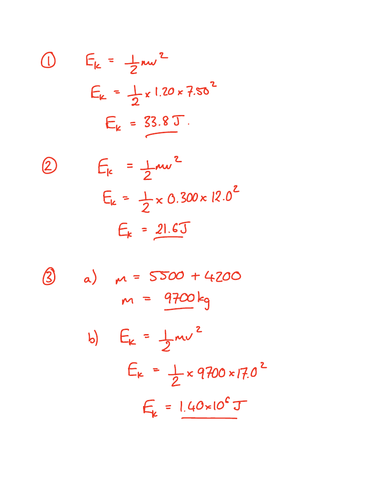 ① Eₖ = 1/2 mv²
Eₖ = 1/2 × 1.20 × 7.50²
Eₖ = 33.8 J.
② Eₖ = 1/2 mv²
Eₖ = 1/2 × 0.300 × 12.0²
Eₖ = 21.6 J
③ a) m = 5500 + 4200
m = 9700 kg
b) Eₖ = 1/2 mv²
Eₖ = 1/2 × 9700 × 17.0²
Eₖ = 1.40 × 10⁶ J